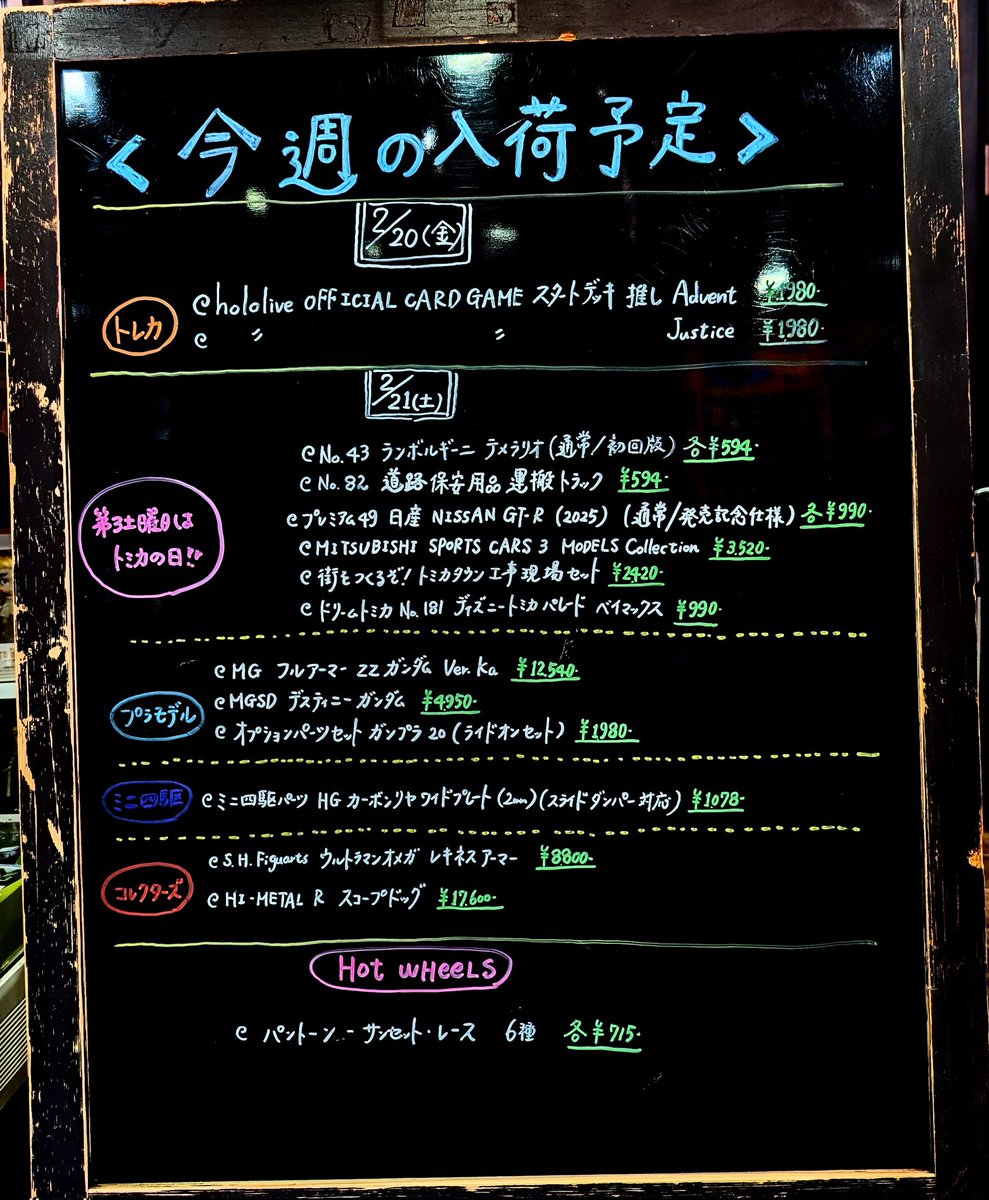 <今週の入荷予定>
2/20(金)
トレカ
hololive OFFICIAL CARD GAME スタートデッキ 推し Advent ¥1980-
〃 〃 Justice ¥1,980-
2/21(土)
第3土曜日は
トミカの日!!
No.43 ランボルギーニ テメラリオ(通常/初回版) 各¥594-
No.82 道路保安用品運搬トラック ¥594-
プレミアム49 日産 NISSAN GT-R (2025) (通常/発売記念仕様) 各¥990-
MITSUBISHI SPORTS CARS 3 MODELS Collection ¥3,520-
街をつくるぞ!トミカタウン工事現場セット ¥2420-
ドリームトミカ No.181 ディズニートミカパレード ベイマックス ¥990-
プラモデル
MG フルアーマー ZZガンダム Ver.Ka ¥12,540-
MGSD デスティニーガンダム ¥4950-
オプションパーツセット ガンプラ 20 (ライドオンセット) ¥1980-
ミニ四駆
ミニ四駆パーツ HG カーボンリヤワイドプレート(2mm)(スライドダンパー対応) ¥1,078-
コレクターズ
S.H.Figuarts ウルトラマンオメガ レキネスアーマー ¥8800-
HI-METAL R スコープドッグ ¥17,600-
Hot WHeeLS
パントーン-サンセット・レース 6種 各¥715-